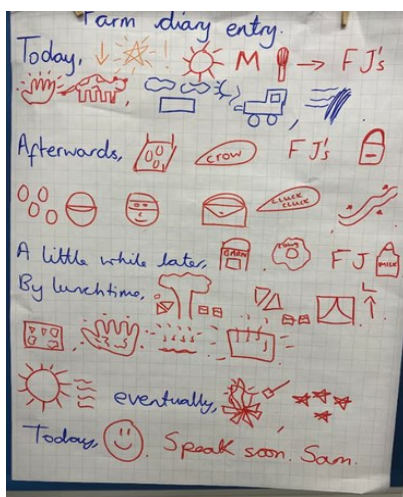 Farm diary entry.
Today, ! M → FJ's
Afterwards, CROW FJ's
CLUCK CLUCK
A little while later, BARN FJ MILK
By lunchtime,
eventually,
Today, Speak soon. Sam.